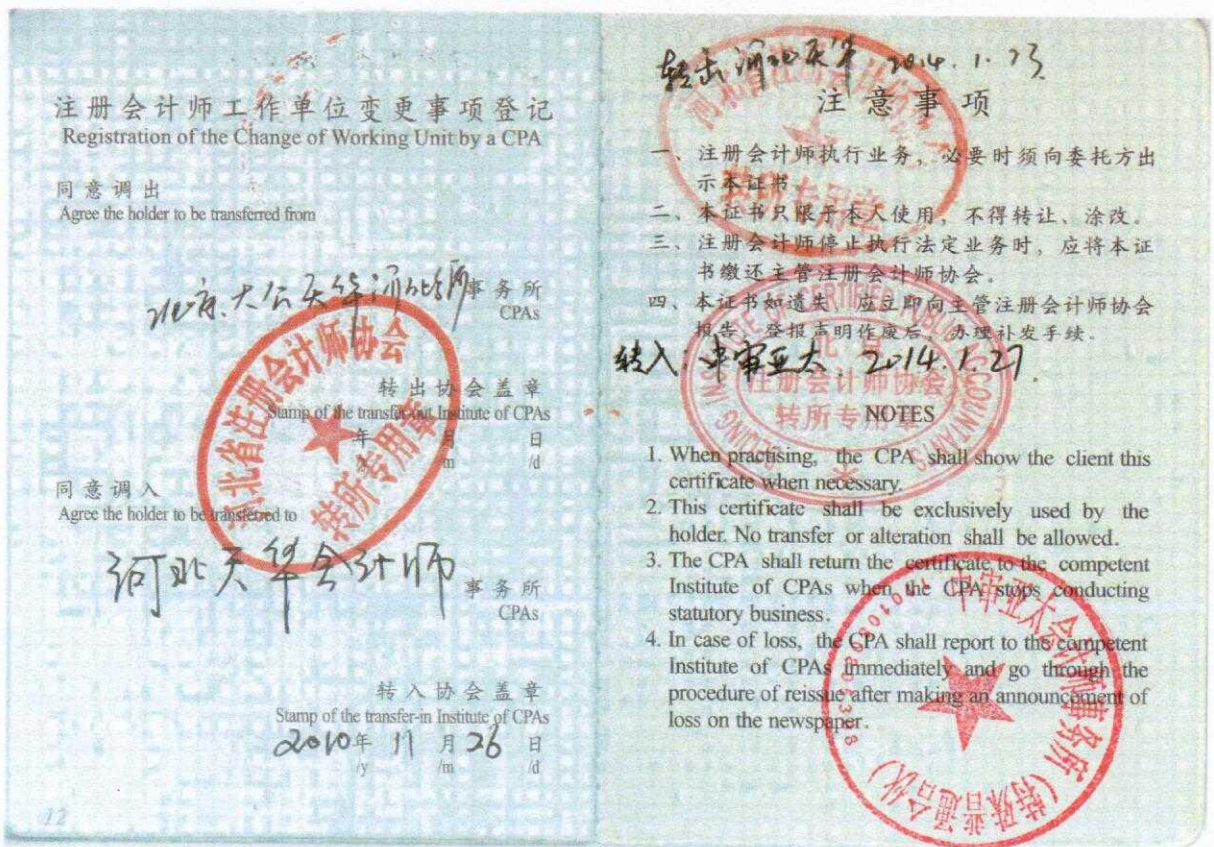 注册会计师工作单位变更事项登记
Registration of the Change of Working Unit by a CPA
同意调出
Agree the holder to be transferred from
北京大公天华河北 事务所
CPAs
转出协会盖章
Stamp of the transfer-out Institute of CPAs
年 月 日
/y /m /d
河北省注册会计师协会
转所专用章
同意调入
Agree the holder to be transferred to
河北天华会计师 事务所
CPAs
转入协会盖章
Stamp of the transfer-in Institute of CPAs
2010年 11 月 26 日
/y /m /d
12
转出 河北天华 2014.1.23
注意事项
一、注册会计师执行业务，必要时须向委托方出
示本证书。
二、本证书只限于本人使用，不得转让、涂改。
三、注册会计师停止执行法定业务时，应将本证
书缴还主管注册会计师协会。
四、本证书如遗失，应立即向主管注册会计师协会
报告，登报声明作废后，办理补发手续。
转入：中审亚太 2014.1.27
北京
注册会计师协会
转所专用章
BEIJING INSTITUTE OF CERTIFIED PUBLIC ACCOUNTANTS
NOTES
1. When practising, the CPA shall show the client this
certificate when necessary.
2. This certificate shall be exclusively used by the
holder. No transfer or alteration shall be allowed.
3. The CPA shall return the certificate to the competent
Institute of CPAs when the CPA stops conducting
statutory business.
4. In case of loss, the CPA shall report to the competent
Institute of CPAs immediately and go through the
procedure of reissue after making an announcement of
loss on the newspaper.
中审亚太会计师事务所（特殊普通合伙）